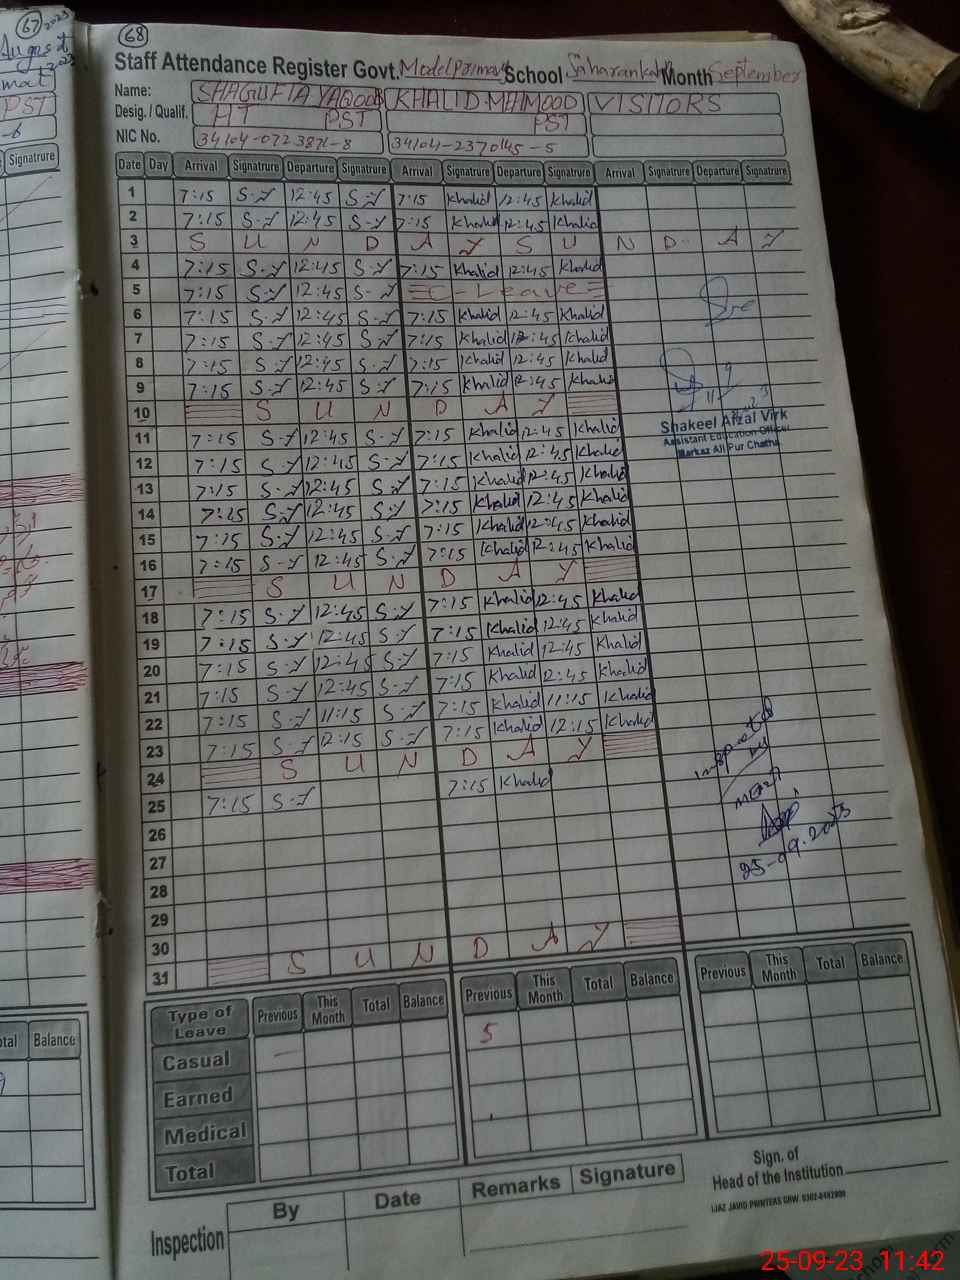 67 2023
August
2023
PST
Signatrure
Balance
68
Staff Attendance Register Govt. Model Primary School Saharankay Month September
Name: SHAGUFTA YAQOOB KHALID MAHMOOD VISITORS
Desig. / Qualif. HT PST PST
NIC No. 34104-0723871-8 34104-2370145-5
Date Day Arrival Signatrure Departure Signatrure Arrival Signatrure Departure Signatrure Arrival Signatrure Departure Signatrure
1 7:15 S-Y 12:45 S-Y 7:15 Khalid 12:45 Khalid
2 7:15 S-Y 12:45 S-Y 7:15 Khalid 12:45 Khalid
3 S U N D A Y S U N D A Y
4 7:15 S-Y 12:45 S-Y 7:15 Khalid 12:45 Khalid
5 7:15 S-Y 12:45 S-Y C-Leave
6 7:15 S-Y 12:45 S-Y 7:15 Khalid 12:45 Khalid
7 7:15 S-Y 12:45 S-Y 7:15 Khalid 12:45 Khalid
8 7:15 S-Y 12:45 S-Y 7:15 Khalid 12:45 Khalid
9 7:15 S-Y 12:45 S-Y 7:15 Khalid 12:45 Khalid
10 S U N D A Y
11 7:15 S-Y 12:45 S-Y 7:15 Khalid 12:45 Khalid
Shakeel Afzal Virk
Assistant Education Officer
Markaz Ali Pur Chatha
12 7:15 S-Y 12:45 S-Y 7:15 Khalid 12:45 Khalid
13 7:15 S-Y 12:45 S-Y 7:15 Khalid 12:45 Khalid
14 7:15 S-Y 12:45 S-Y 7:15 Khalid 12:45 Khalid
15 7:15 S-Y 12:45 S-Y 7:15 Khalid 12:45 Khalid
16 7:15 S-Y 12:45 S-Y 7:15 Khalid 12:45 Khalid
17 S U N D A Y
18 7:15 S-Y 12:45 S-Y 7:15 Khalid 12:45 Khalid
19 7:15 S-Y 12:45 S-Y 7:15 Khalid 12:45 Khalid
20 7:15 S-Y 12:45 S-Y 7:15 Khalid 12:45 Khalid
21 7:15 S-Y 12:45 S-Y 7:15 Khalid 12:45 Khalid
22 7:15 S-Y 11:15 S-Y 7:15 Khalid 11:15 Khalid
23 7:15 S-Y 12:15 S-Y 7:15 Khalid 12:15 Khalid
24 S U N D A Y
25 7:15 S-Y 7:15 Khalid
Inspected
by
MEA
25-09.2023
26
27
28
29
30
31 S U N D A Y
Type of Leave Previous This Month Total Balance Previous This Month Total Balance Previous This Month Total Balance
Casual - 5
Earned
Medical
Total
Inspection By Date Remarks Signature
Sign. of
Head of the Institution
IJAZ JAVID PRINTERS GRW
25-09-23 11:42